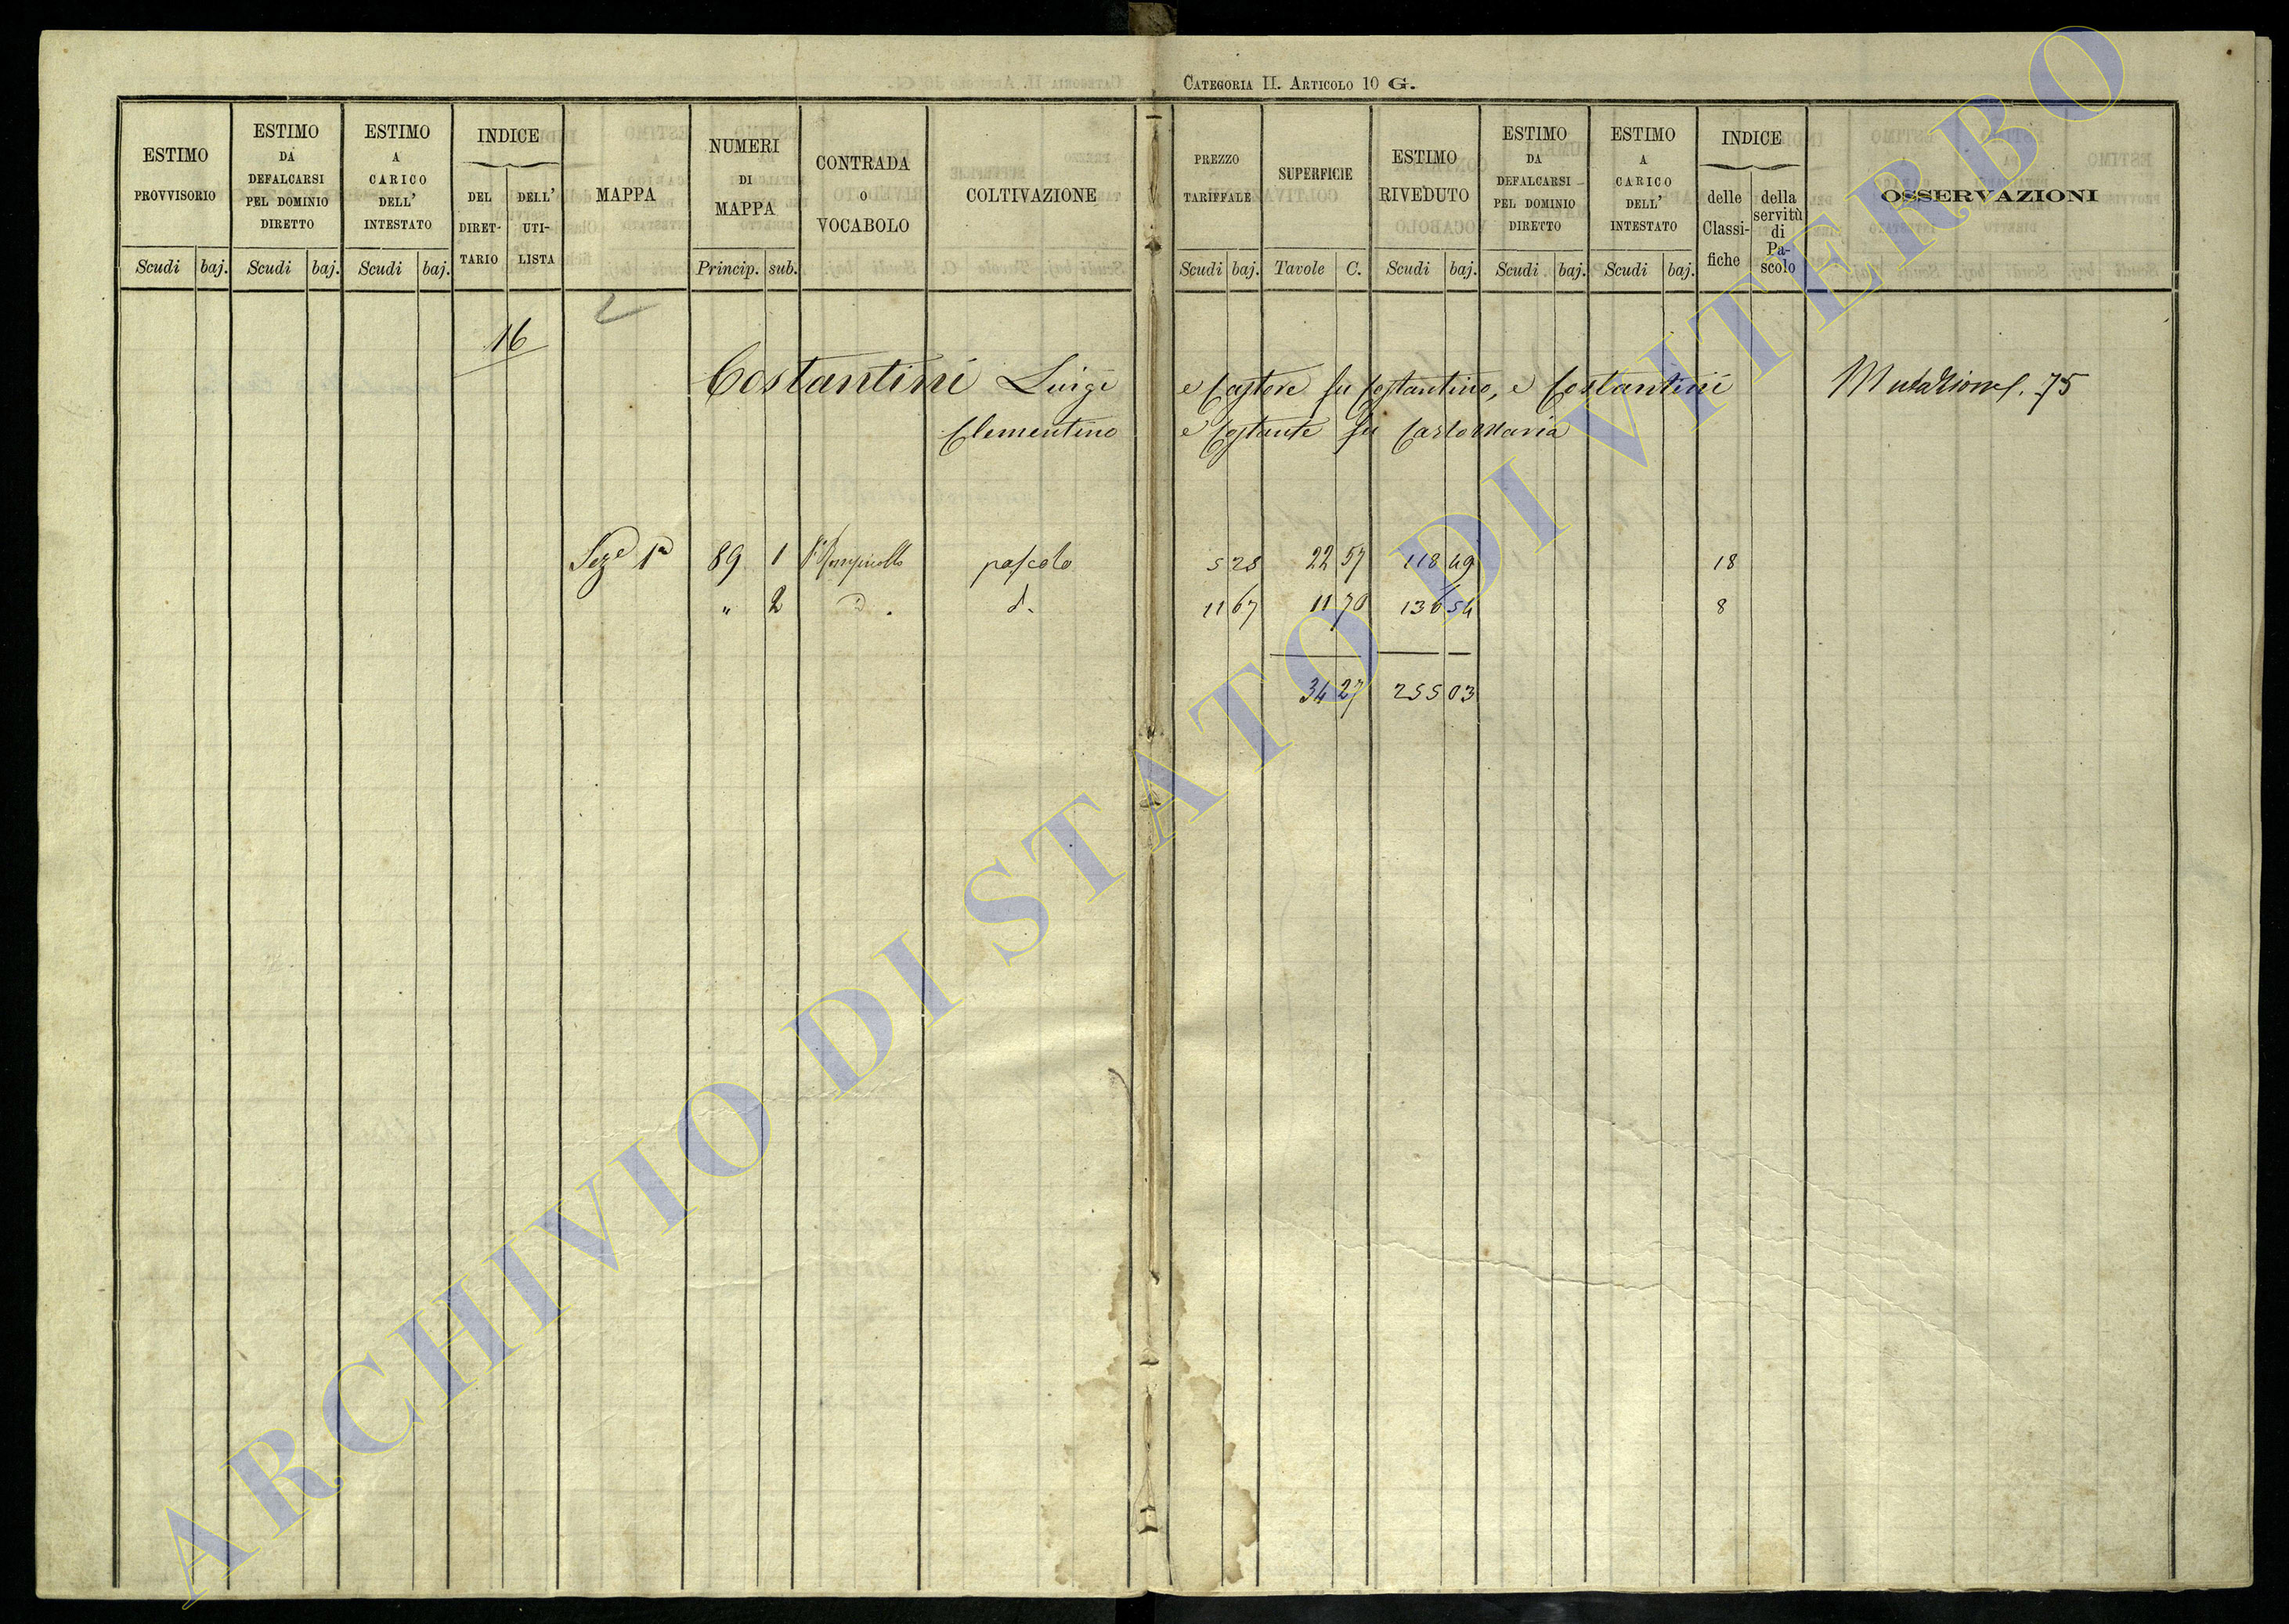 CATEGORIA II. ARTICOLO 10 G.
ESTIMO PROVVISORIO Scudi baj.
ESTIMO DA DEFALCARSI PEL DOMINIO DIRETTO Scudi baj.
ESTIMO A CARICO DELL' INTESTATO Scudi baj.
INDICE DEL DIRET- TARIO DELL' UTI- LISTA
MAPPA
NUMERI DI MAPPA Princip. sub.
CONTRADA O VOCABOLO
COLTIVAZIONE
PREZZO TARIFFALE Scudi baj.
SUPERFICIE Tavole C.
ESTIMO RIVEDUTO Scudi baj.
ESTIMO DA DEFALCARSI PEL DOMINIO DIRETTO Scudi baj.
ESTIMO A CARICO DELL' INTESTATO Scudi baj.
INDICE delle Classi- fiche della servitù di Pa- scolo
OSSERVAZIONI
2
16
Costantini Luigi e Castore fu Costantino, e Costantini Mutazione f. 75
Clementino e Costante fu Carlo Maria
Seze 1a 89 1 pascolo 5 28 22 57 118 49 18
" 2 d. d. 11 67 11 70 136 54 8
34 27 255 03
ARCHIVIO DI STATO DI VITERBO